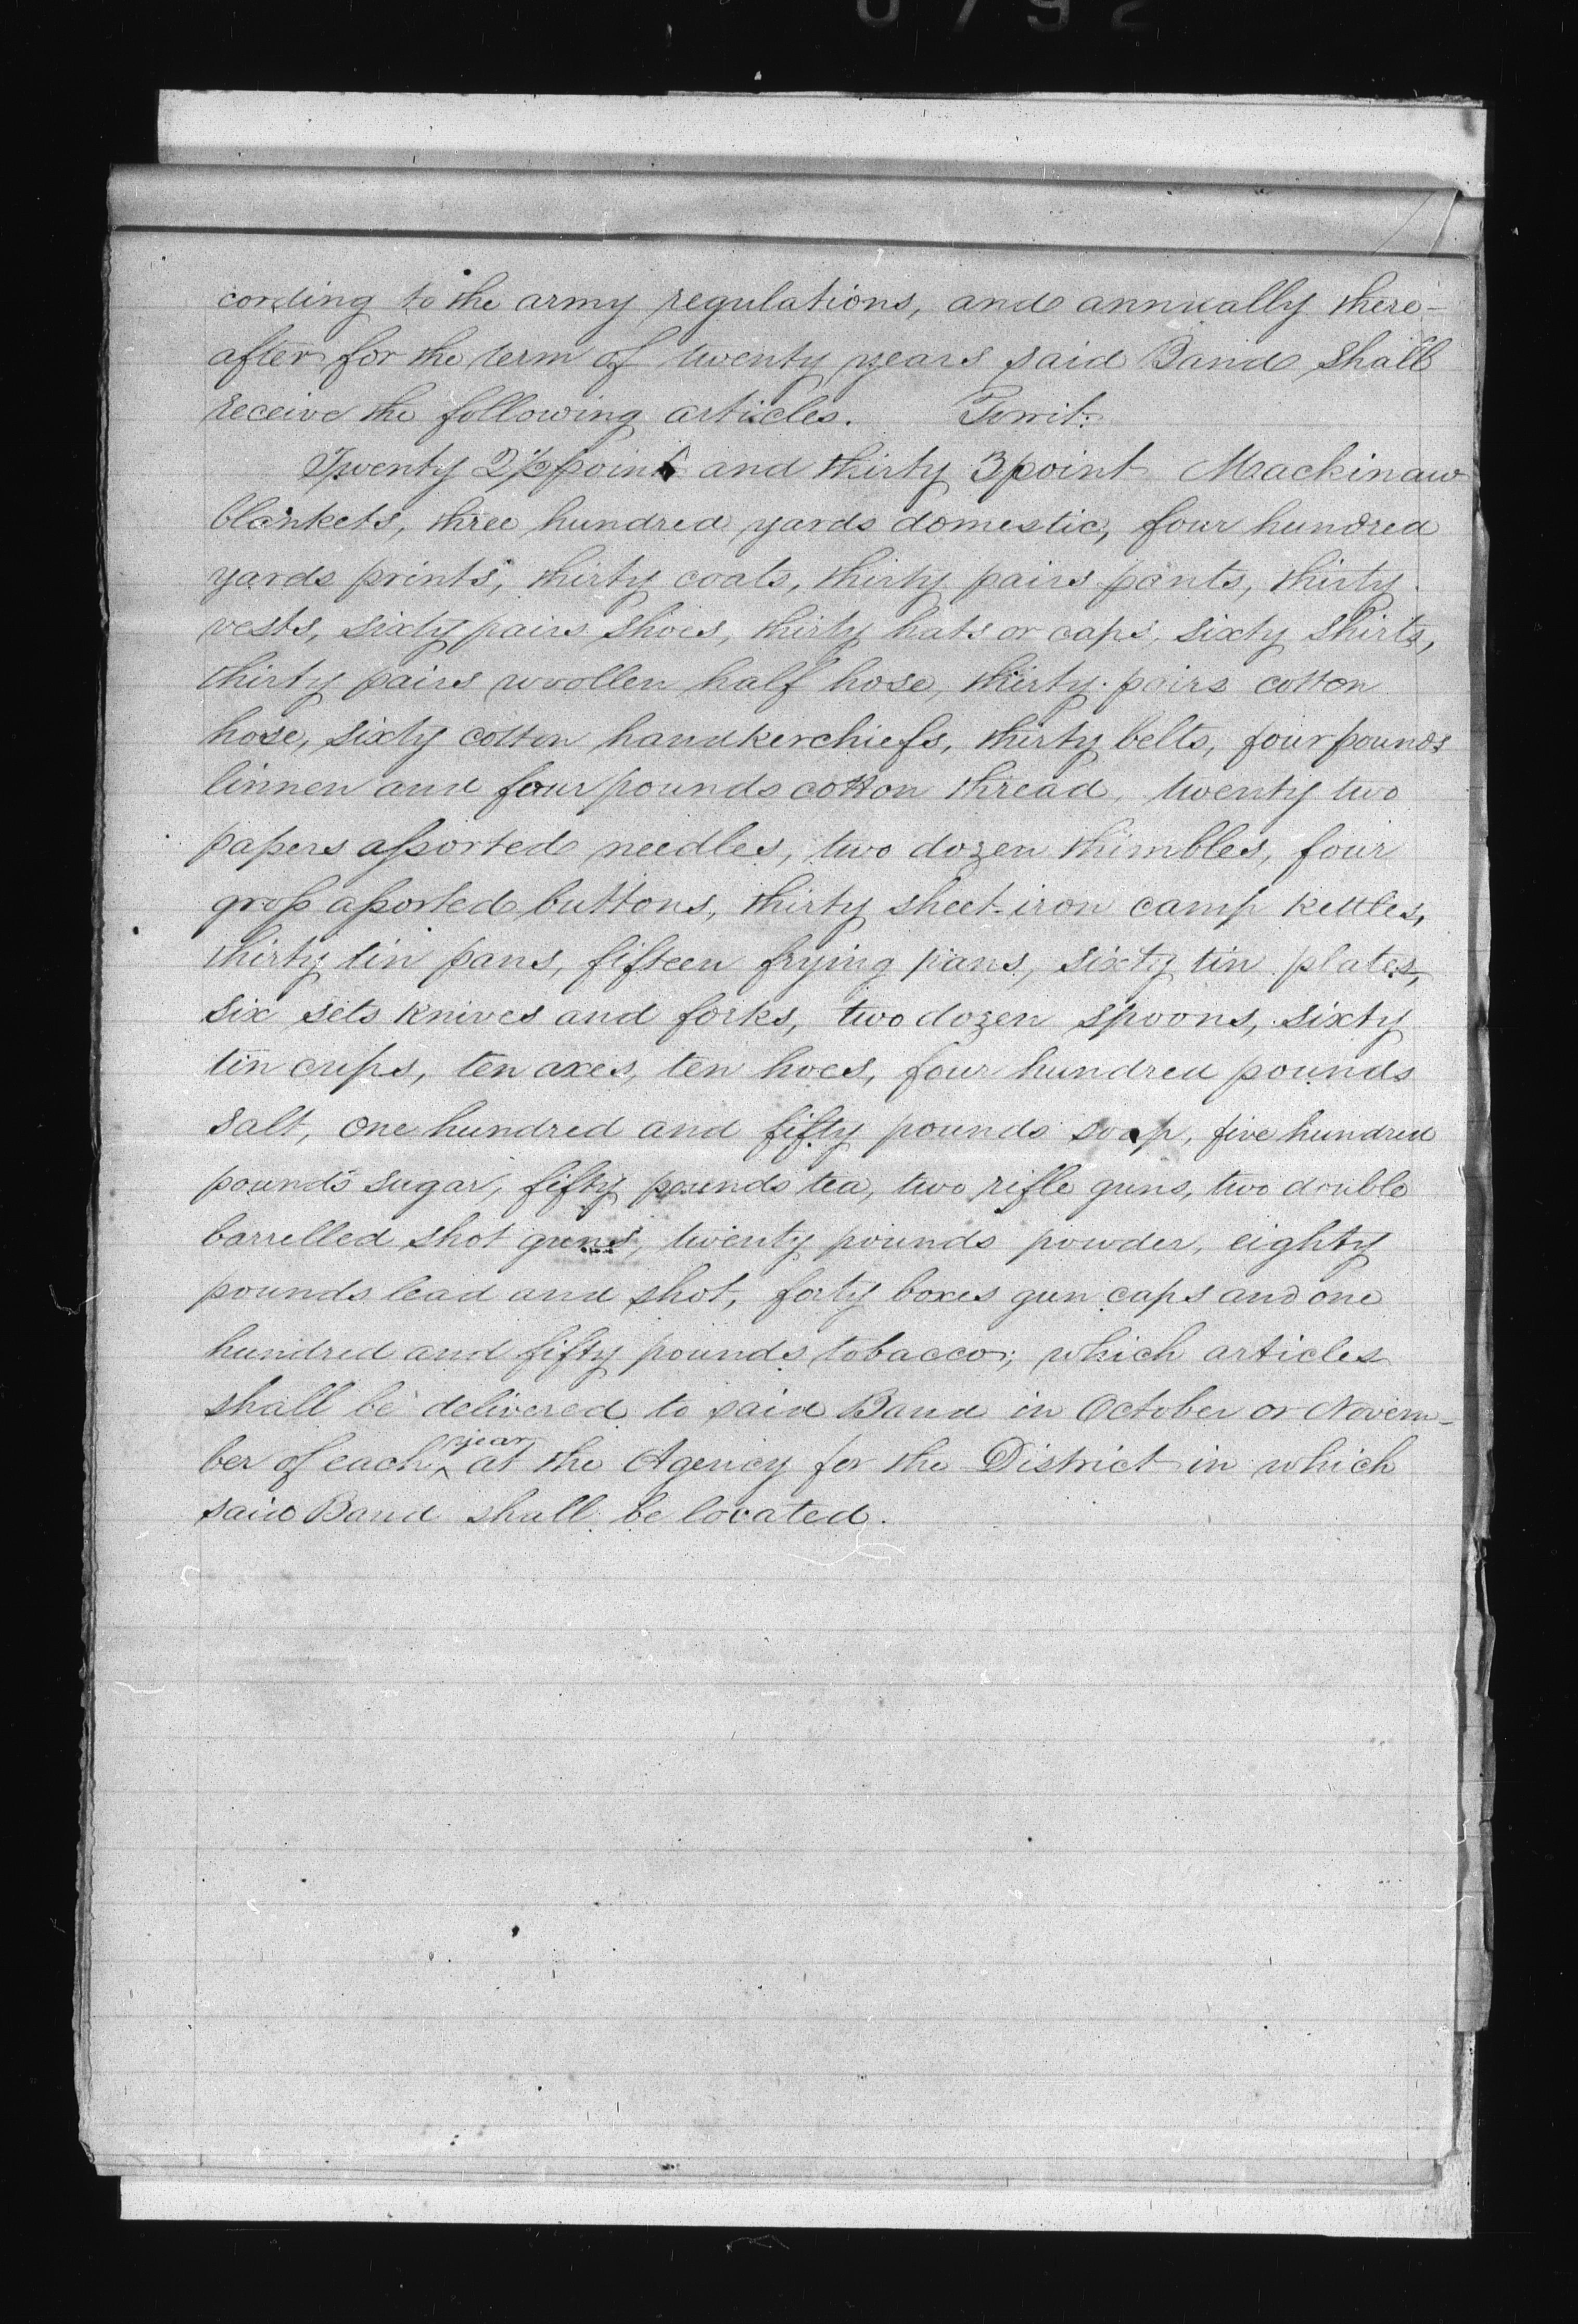 cording to the army regulations, and annually there-
after for the term of twenty years said Band shall
receive the following articles. Towit:
Twenty 2½ point and thirty 3 point Mackinaw
blankets, three hundred yards domestic, four hundred
yards prints, thirty coats, thirty pairs pants, thirty
vests, sixty pairs shoes, thirty hats or caps, sixty shirts,
thirty pairs woollen half hose, thirty pairs cotton
hose, sixty cotton handkerchiefs, thirty belts, four pounds
linnen and four pounds cotton thread, twenty two
papers assorted needles, two dozen thimbles, four
gross assorted buttons, thirty sheet-iron camp kettles,
thirty tin pans, fifteen frying pans, sixty tin plates,
six sets knives and forks, two dozen spoons, sixty
tin cups, ten axes, ten hoes, four hundred pounds
salt, one hundred and fifty pounds soap, five hundred
pounds sugar, fifty pounds tea, two rifle guns, two double
barrelled shot guns, twenty pounds powder, eighty
pounds lead and shot, forty boxes gun caps and one
hundred and fifty pounds tobacco; which articles
shall be delivered to said Band in October or Novem-
ber of each year at the Agency for the District in which
said Band shall be located.